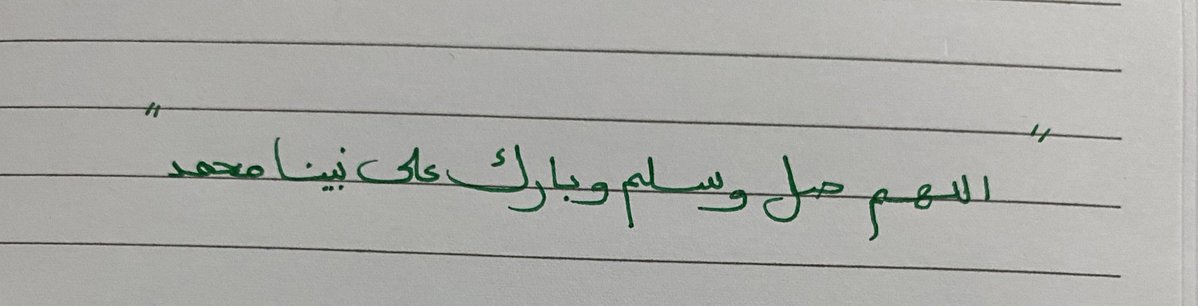 "اللهم صل وسلم وبارك على نبينا محمد"